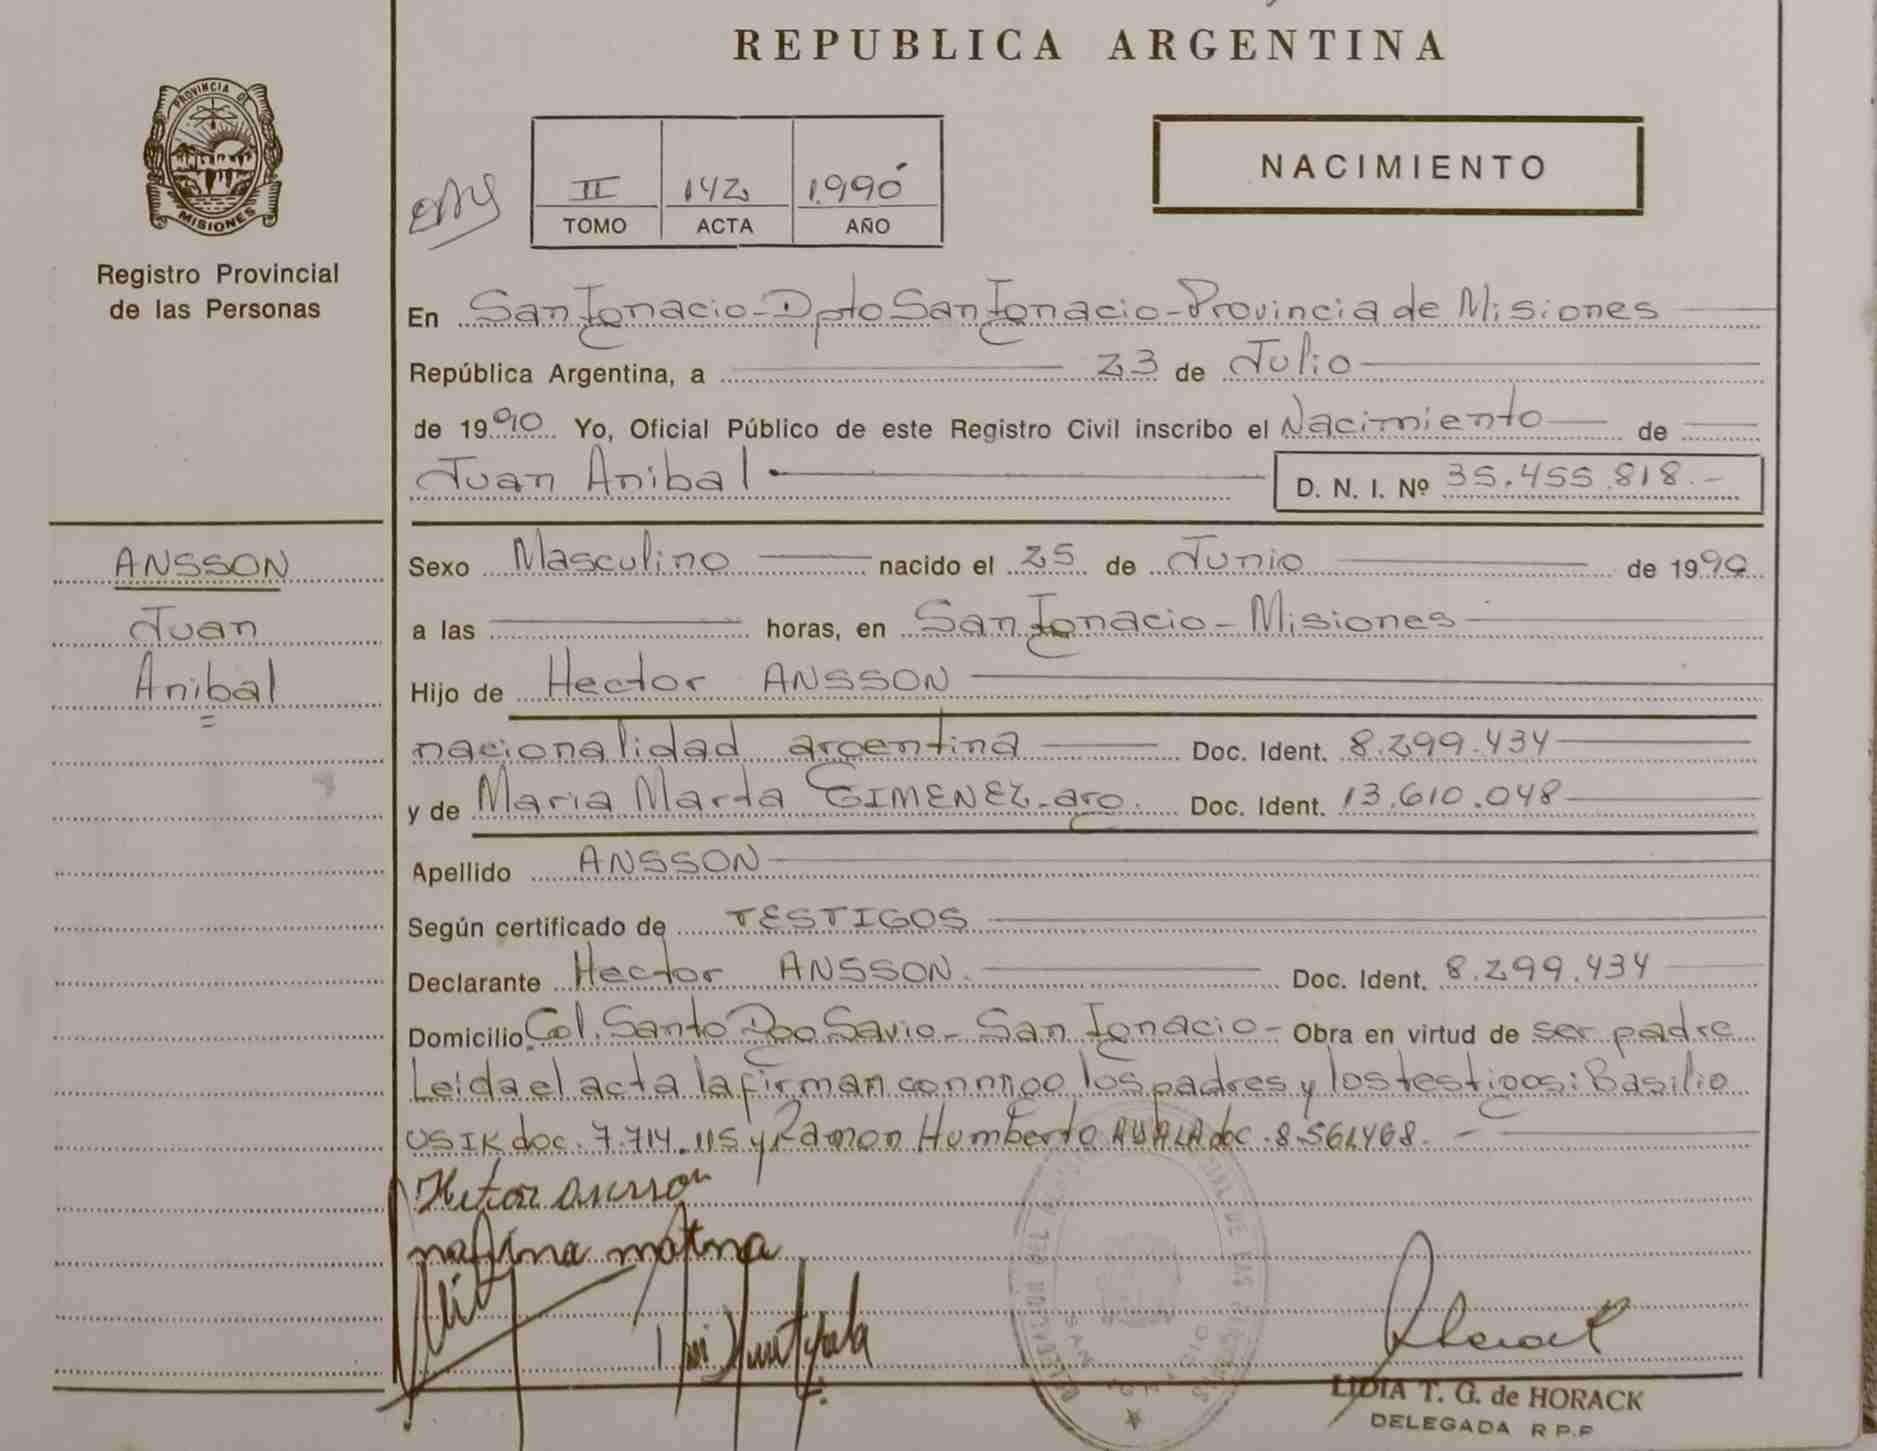 REPUBLICA ARGENTINA
PROVINCIA DE
MISIONES
Registro Provincial
de las Personas
II 142 1.990
TOMO ACTA AÑO
NACIMIENTO
En San Ignacio - Dpto San Ignacio - Provincia de Misiones
República Argentina, a 23 de Julio
de 1990 Yo, Oficial Público de este Registro Civil inscribo el Nacimiento de
Juan Anibal D. N. I. Nº 35.455.818.-
ANSSON
Juan
Anibal
Sexo Masculino nacido el 25 de Junio de 1990
a las horas, en San Ignacio - Misiones
Hijo de Hector ANSSON
nacionalidad argentina Doc. Ident. 8.299.434
y de Maria Marta GIMENEZ - arg. Doc. Ident. 13.610.048
Apellido ANSSON
Según certificado de TESTIGOS
Declarante Hector ANSSON. Doc. Ident. 8.299.434
Domicilio Col. Santo Dgo Savio - San Ignacio - Obra en virtud de ser padre
Leida el acta la firman conmigo los padres y los testigos: Basilio
USIK doc. 7.714.115 y Ramon Humberto AYALA doc. 8.561468. -
LIDIA T. G. de HORACK
DELEGADA R P.P